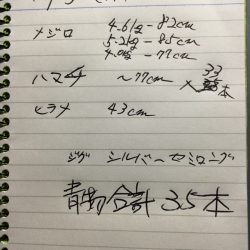 メジロ 4.61kg-82cm
5.2kg-85cm
4.0kg-77cm
ハマチ ~77cm ×33
ヒラメ 43cm
ジグ シルバーセミロング
青物合計 35本